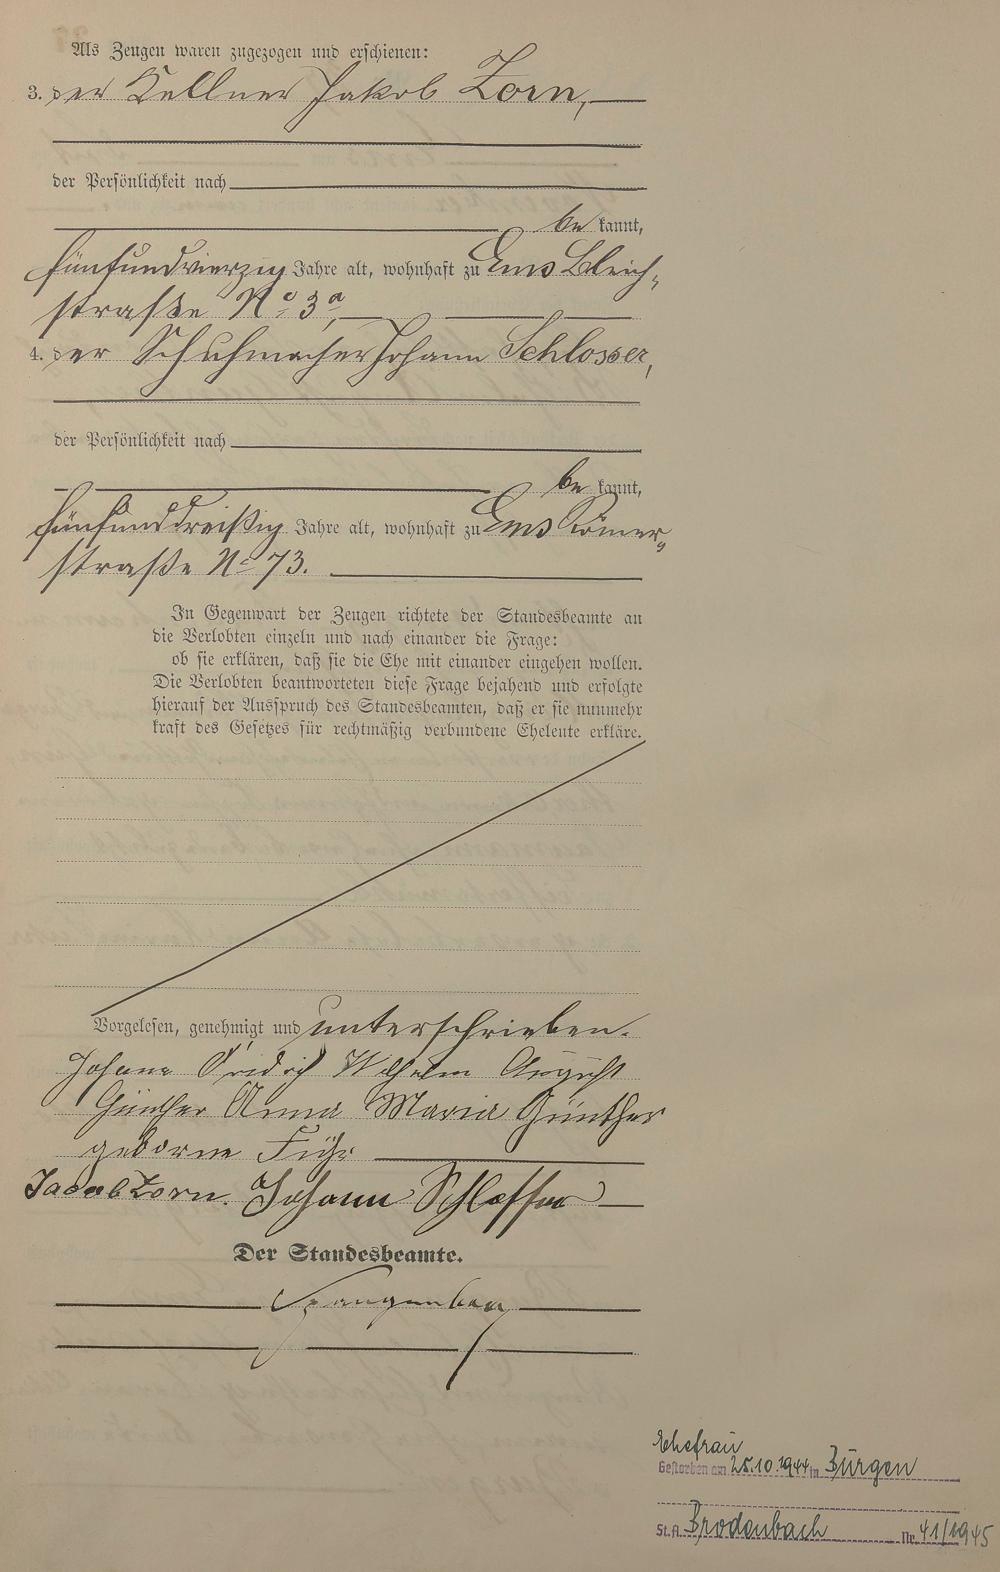 Als Zeugen waren zugezogen und erschienen:
3. der Kellner Jakob Zorn,
der Persönlichkeit nach
be kannt,
fünfundvierzig Jahre alt, wohnhaft zu Ems Bleich-
straße No 3a,
4. der Schuhmacher Johann Schlosser,
der Persönlichkeit nach
be kannt,
fünfunddreißig Jahre alt, wohnhaft zu Ems Römer-
straße No 73.
In Gegenwart der Zeugen richtete der Standesbeamte an
die Verlobten einzeln und nach einander die Frage:
ob sie erklären, daß sie die Ehe mit einander eingehen wollen.
Die Verlobten beantworteten diese Frage bejahend und erfolgte
hierauf der Ausspruch des Standesbeamten, daß er sie nunmehr
kraft des Gesetzes für rechtmäßig verbundene Eheleute erkläre.
Vorgelesen, genehmigt und unterschrieben.
Johann Fridrich Wilhelm August
Günther Anna Maria Günther
geborne Führ
Jacob Zorn. Johann Schlosser
Der Standesbeamte.
Spangenberg
Ehefrau
Gestorben am 25.10.1944 in Burgen
St.A. Brodenbach Nr. 41/1945